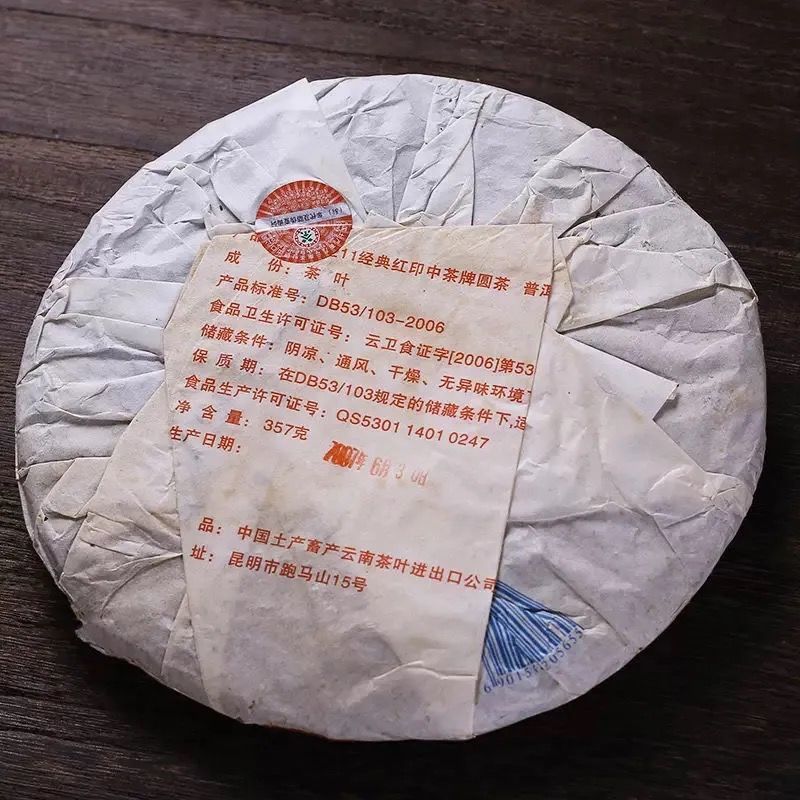 11经典红印中茶牌圆茶 普洱
成 份：茶 叶
产品标准号：DB53/103-2006
食品卫生许可证号：云卫食证字[2006]第53
储藏条件：阴凉、通风、干燥、无异味环境
保 质 期：在DB53/103规定的储藏条件下,适
食品生产许可证号：QS5301 1401 0247
净 含 量：357克
生产日期：
2007年 6月 3 0日
品：中国土产畜产云南茶叶进出口公司
址：昆明市跑马山15号